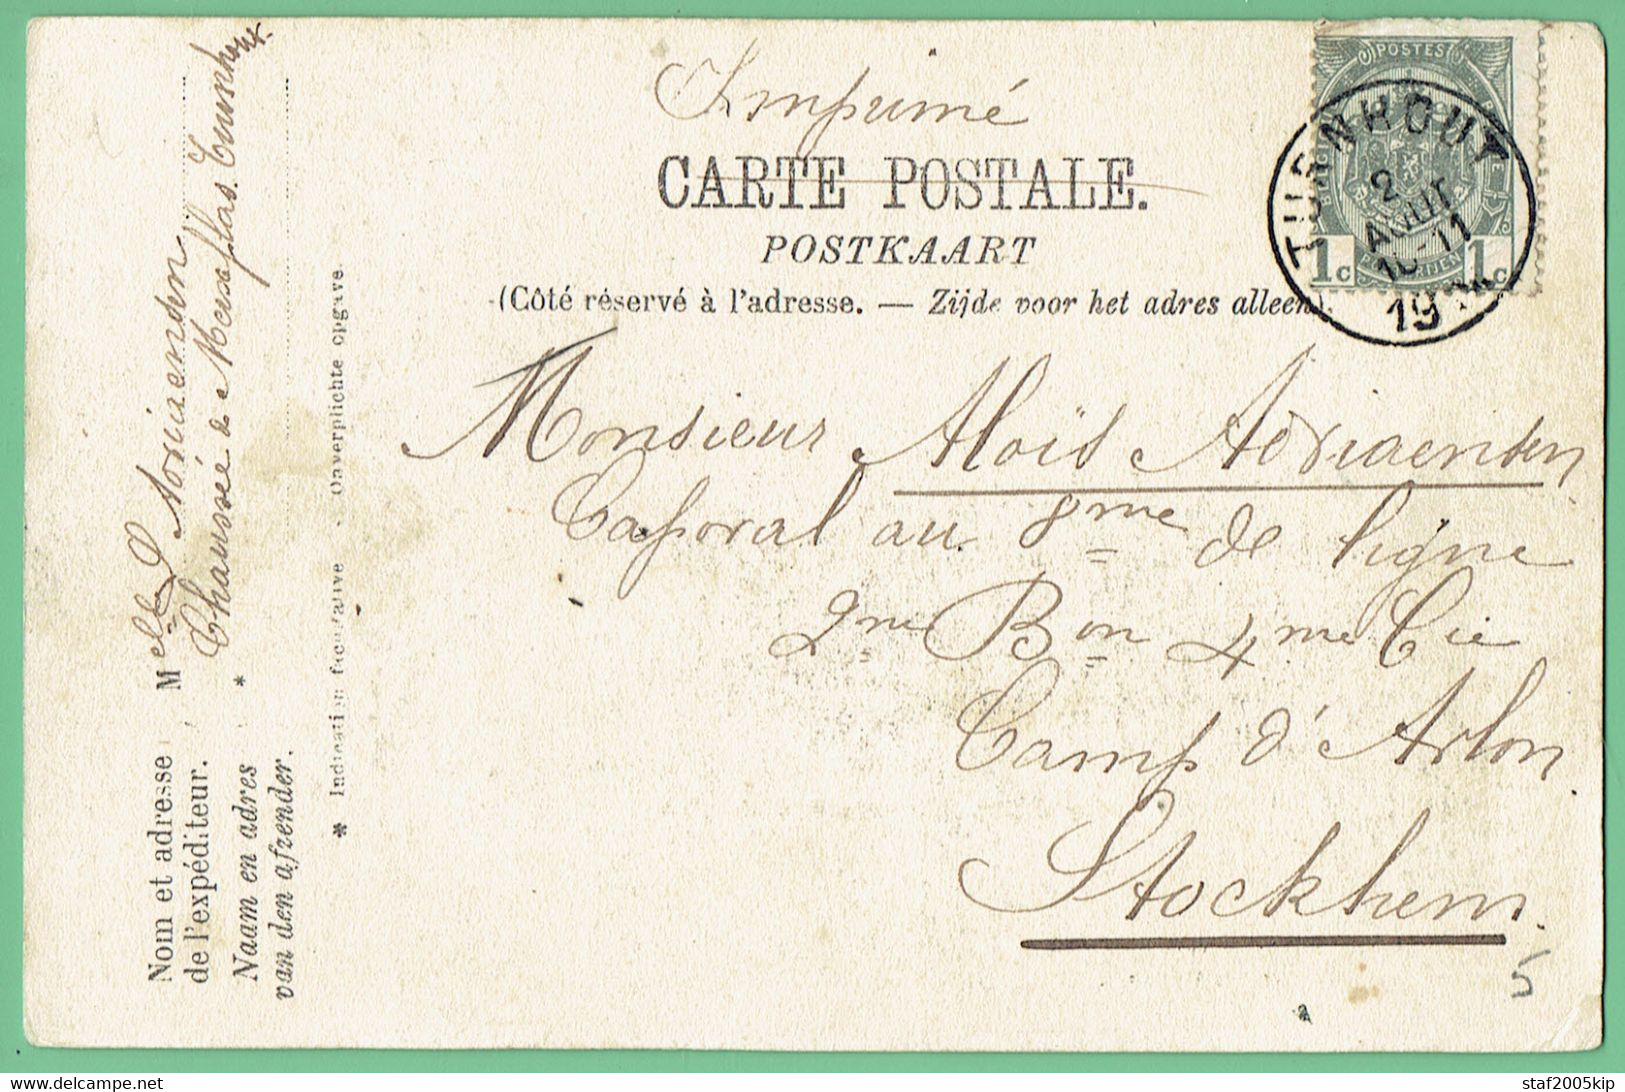 Imprimé
CARTE POSTALE.
POSTKAART
(Côté réservé à l'adresse. — Zijde voor het adres alleen).
POSTES
TURNHOUT
2
AOUT
10-11
19
1c
POSTERIJEN
1c
Monsieur Aloïs Adriaensen
Caporal au 8me de ligne
2me Bon 4me Cie
Camp d'Arlon
Stockhem.
5
Nom et adresse Melle Adriaensen
de l'expéditeur. Chaussé de Merxplas Turnhout
Naam en adres *
van den afzender.
* Indication facultative - Onverplichte opgave.
delcampe.net
staf2005kip